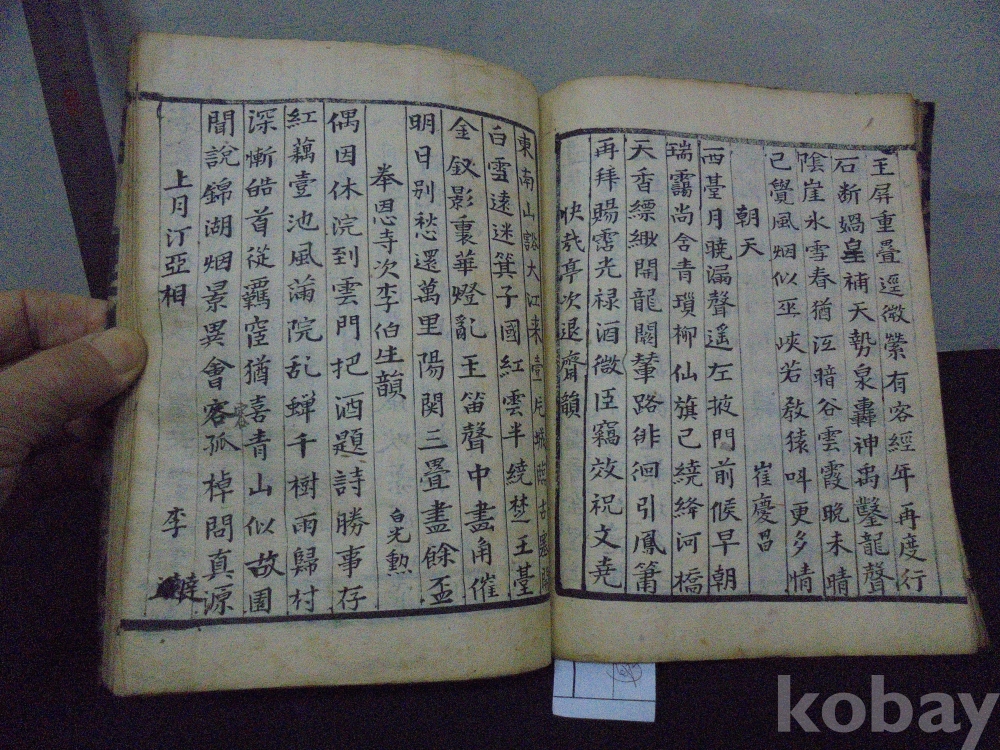 玉屏重疊逕微縈有客經年再度行
石斷媧皇補天勢泉轟神禹鑿龍聲
陰崖氷雪春猶沍暗谷雲霞晩未晴
已覺風烟似巫峽若敎猿呌更多情
朝天 崔慶昌
西臺月曉漏聲遥左掖門前候早朝
瑞靄尚含青瑣柳仙旗已繞絳河橋
天香縹緲開龍闕輦路徘徊引鳳簫
再拜賜霑光禄酒微臣竊效祝文堯
快哉亭次退齋韻
東南山豁大江来壹片城臨古
白雪遠迷箕子國紅雲半繞楚王臺
金釵影裏華燈亂玉笛聲中畫角催
明日别愁還萬里陽関三疊盡餘盃
奉恩寺次李伯生韻 白光勲
偶因休浣到雲門把酒題詩勝事存
紅藕壹池風蒲院乱蟬千樹雨歸村
深慚皓首從羈宦猶喜青山似故園
聞說錦湖烟景異會容孤棹問真源
上月汀亞相 李達
kobay